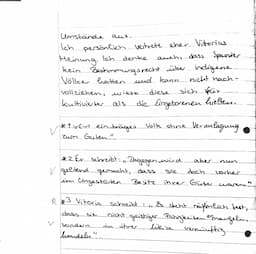 Umstände aus.
Ich persönlich vertrete eher Vitorias
Meinung. Ich denke auch, dass Spanier
kein Bestimmungsrecht über indigene
Völker hatten und kann nicht nach-
vollziehen, wieso diese sich für
kultivierter als die Eingeborenen hielten.
*1 "Ein einfältiges Volk ohne Veranlagung
zum Guten"
V *2 Er schreibt: "Dagegen wird aber nun
geltend gemacht, dass sie doch vorher
im ungestörten Besitz ihrer Güter waren."
R *3 Vitoria schreibt: "Es steht nämlich fest,
dass sie nicht geistiger Fähigkeiten ermangeln,
V sondern in ihrer Weise vernünftig
handeln"